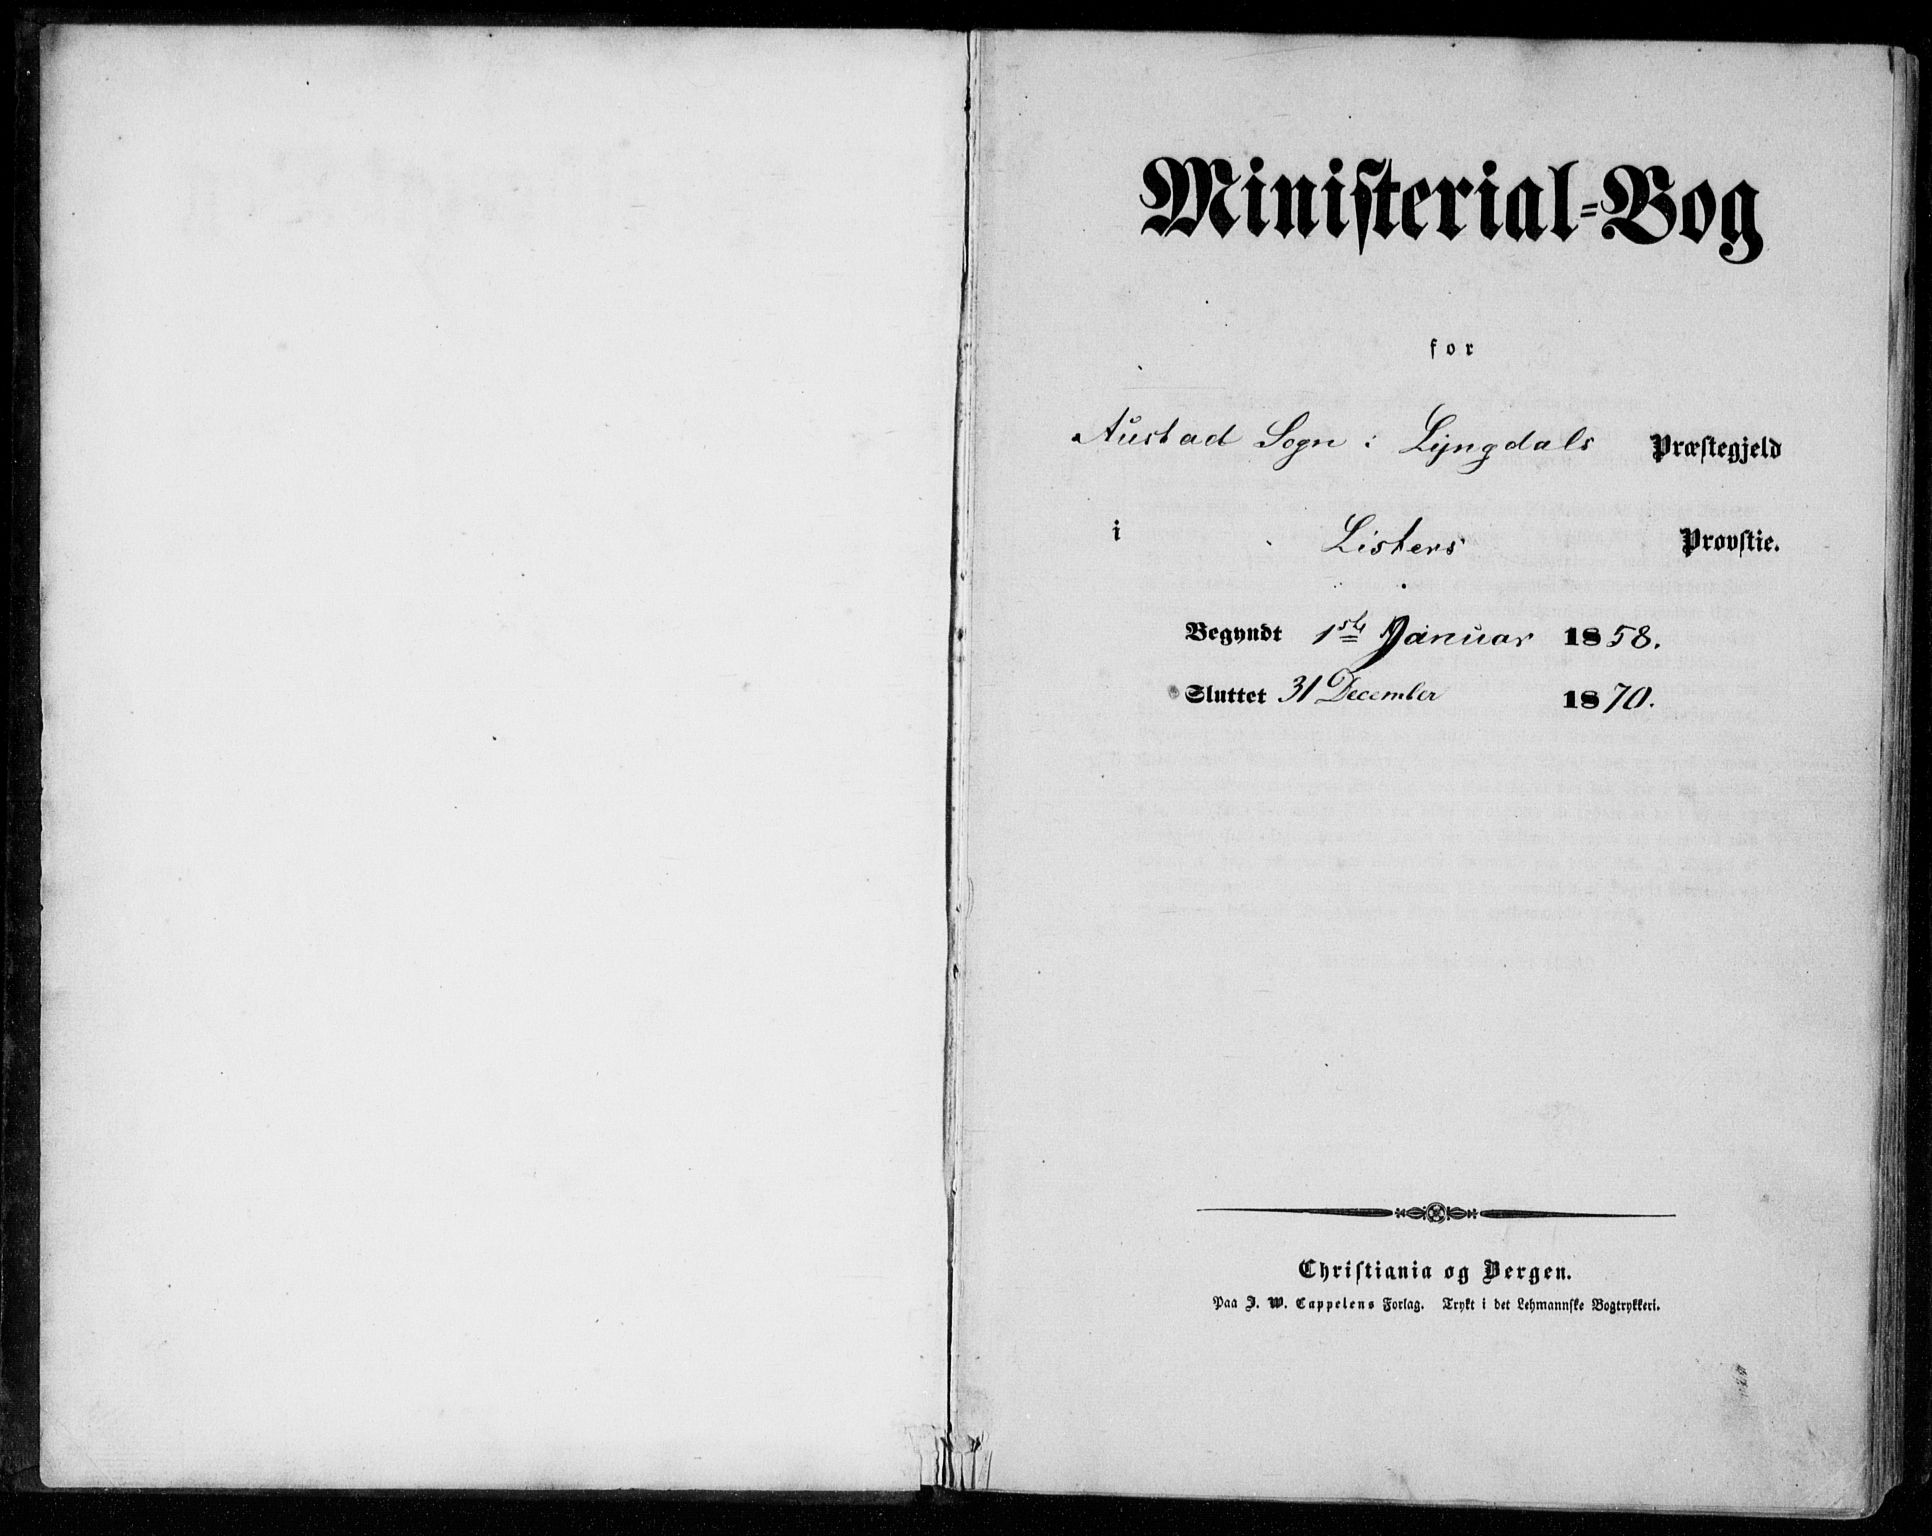 Ministerial-Bog
for
Austad Sogn i Lyngdals Præstegjeld
i Listers Provstie.
Begyndt 1ste Januar 1858.
Sluttet 31 December 1870.
Christiania og Bergen.
Paa J. W. Cappelens Forlag. Trykt i det Lehmannske Bogtrykkeri.